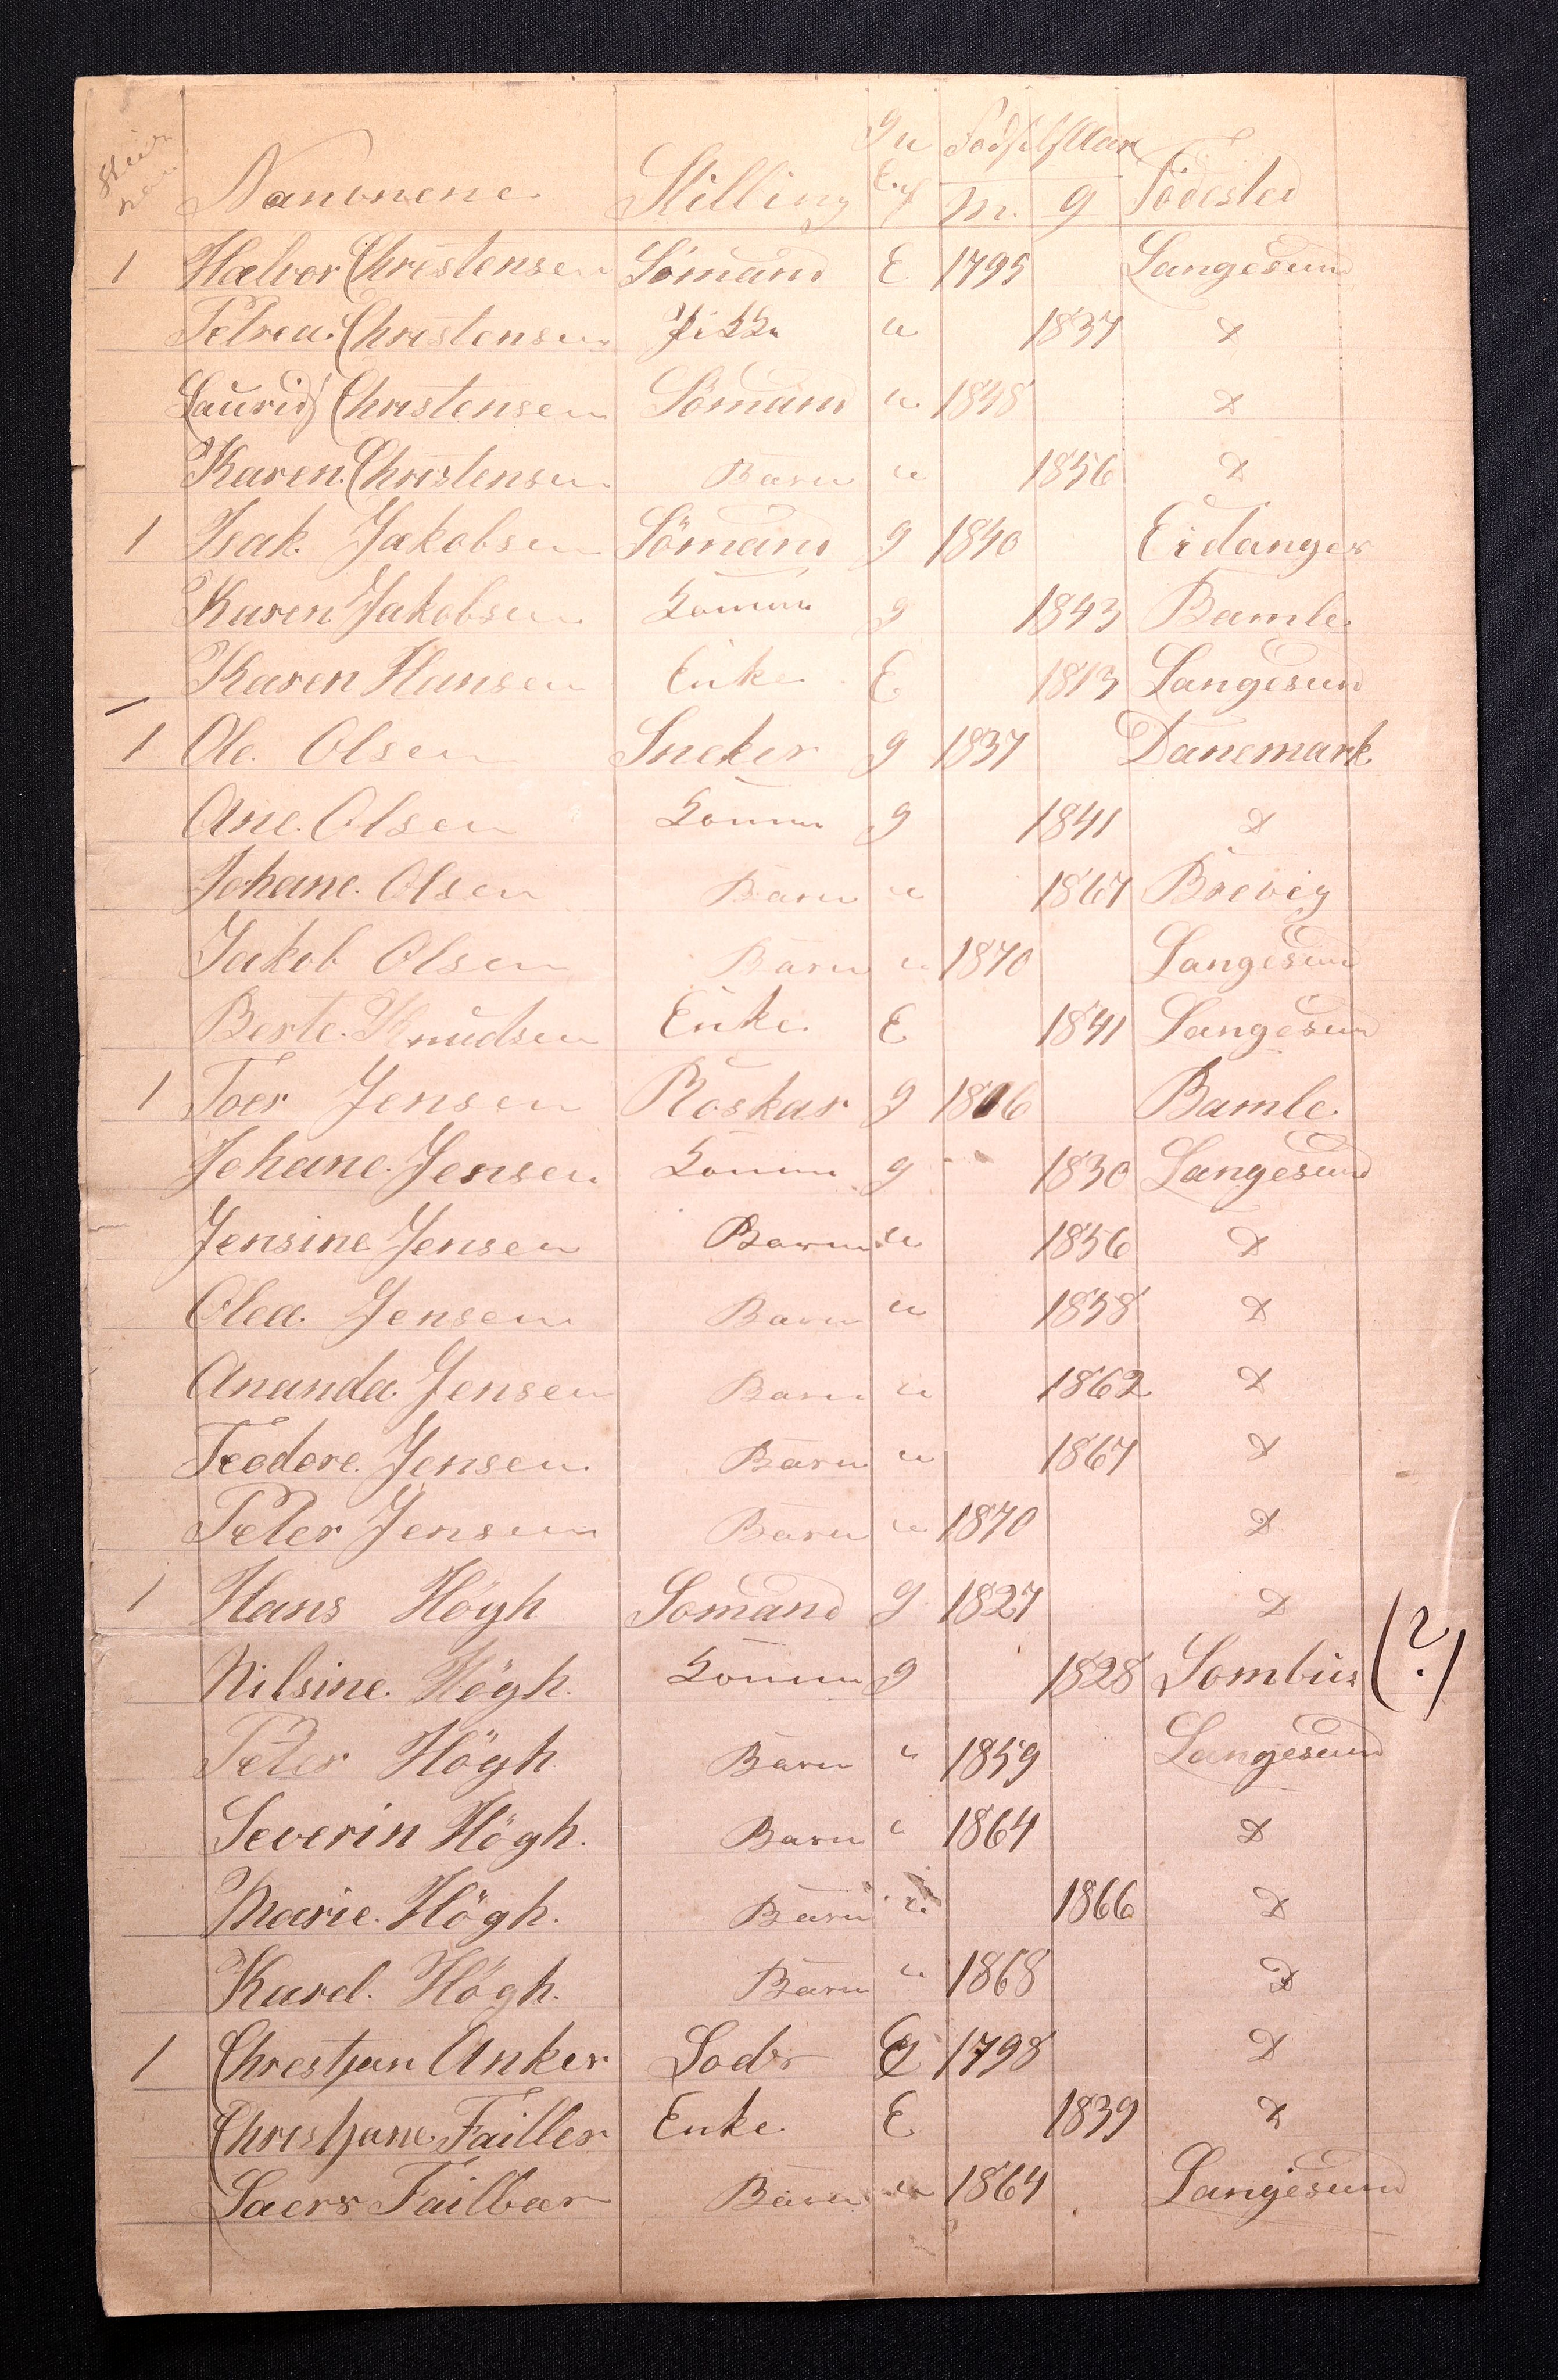 Navnene Stilling Fødselsaar M. Födested
1 Halvor Christensen Sömand E 1795 Langesund
Petrea Christensen u 1837 D
Laurids Christensen Sömand u 1848 D
Karen Christensen Barn u 1856 D
1 Isak Jakobsen Sömand g 1840 Eidanger
Karen Jakobsen g 1843 Bamle
Karen Hansen Enke E 1813 Langesund
1 Ole Olsen Sneker g 1837 Danemark
Ane Olsen g 1841 D
Johane Olsen Barn u 1867 Brevig
Jakob Olsen Barn u 1870 Langesund
Berte Knudsen Enke E 1841 Langesund
1 Toer Jensen Roskar g 1816 Bamle
Johane Jensen g 1830 Langesund
Jensine Jensen Barn u 1856 D
Olea Jensen Barn u 1858 D
Ananda Jensen Barn u 1862 D
Teodore Jensen Barn u 1867 D
Peter Jensen Barn u 1870 D
1 Hans Högh Somand g 1827 D
Nilsine Högh g 1828 Sombus (?)
Peter Högh Barn u 1859 Langesund
Severin Högh. Barn u 1864 D
Marie Högh. Barn u 1866 D
Karel Högh. Barn u 1868 D
1 Christjan Anker Lods 1798 D
Christjane Failler Enke E 1839 D
Failbær Barn u 1864 Langesund